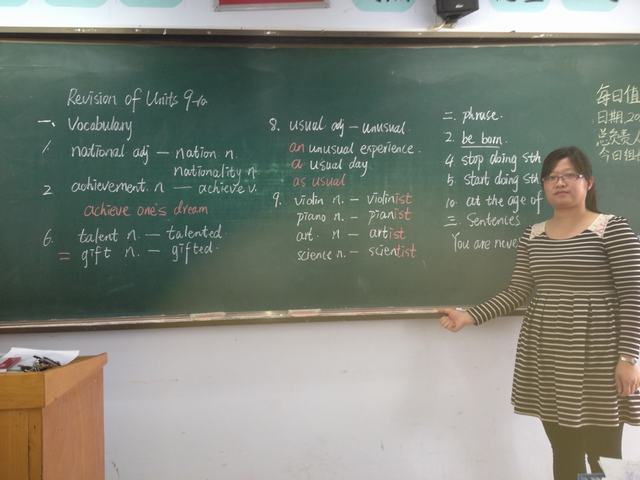 Revision of Units 9-10
一、Vocabulary
1. national adj — nation n.
nationality n
2. achievement. n — achieve v.
achieve one's dream
6. talent n. — talented.
= gift n. — gifted.
8. usual adj — unusual.
an unusual experience.
a usual day.
as usual
9. violin n. — violinist
piano n. — pianist
art. n — artist
science n. — scientist
二. phrase.
2. be born.
4. stop doing sth
5. start doing sth
10. at the age of
三. Sentences
You are never
每日值
日期.20
总负责人
今日组